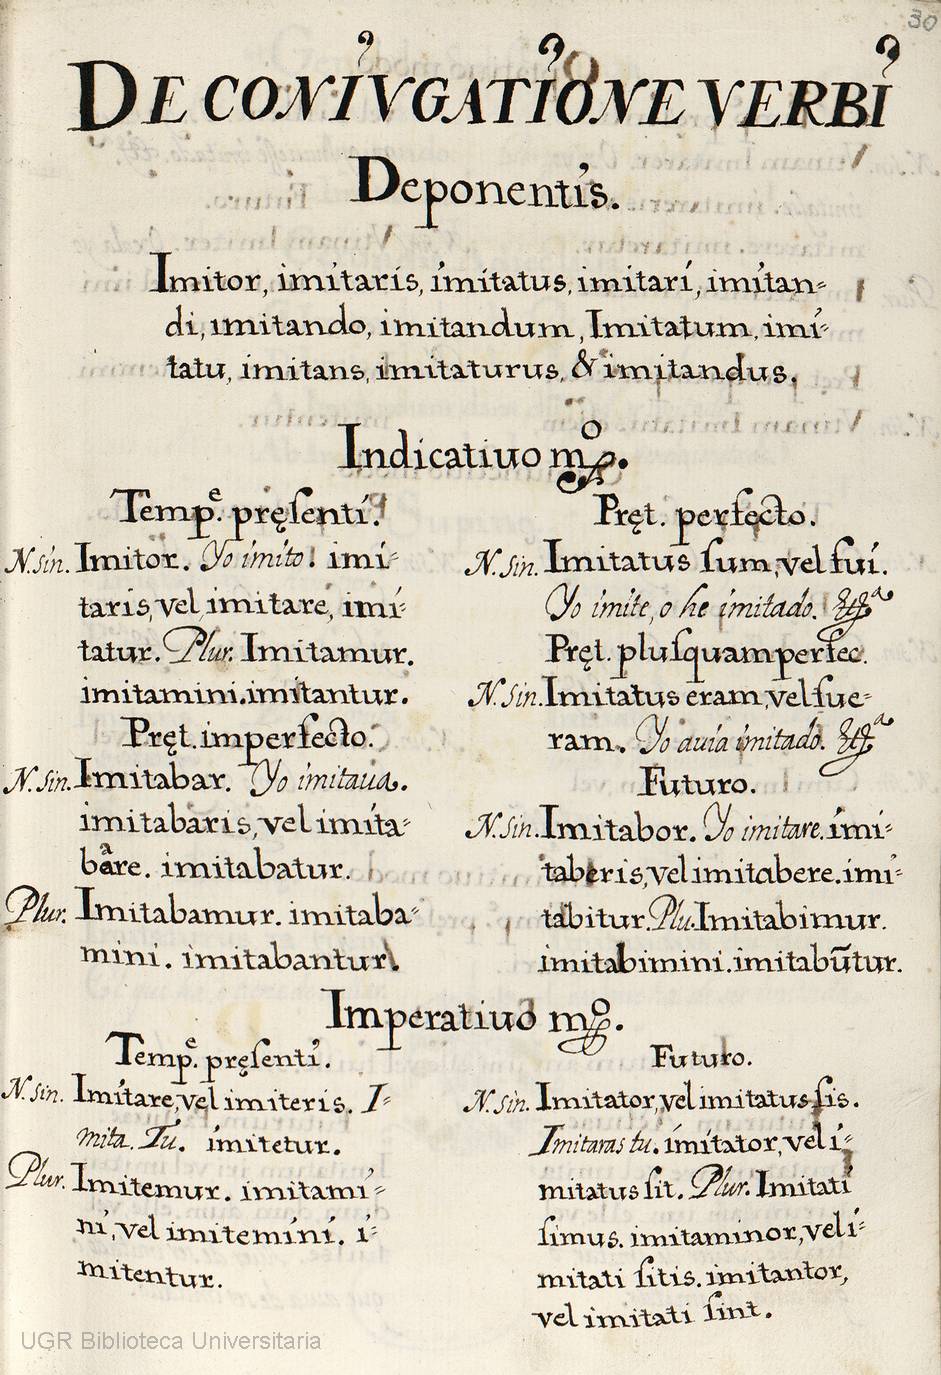 30
DE CONIVGATIONE VERBI
Deponentis.
Imitor, imitaris, imitatus, imitari, imitan-
di, imitando, imitandum, Imitatum, imi-
tatu, imitans, imitaturus, & imitandus.
Indicatiuo mo.
Tempe. pręſenti.
N. sin. Imitor. Yo imito. imi-
taris, vel imitare, imi-
tatur. Plur. Imitamur.
imitamini. imitantur.
Pręt. imperfecto.
N. sin. Imitabar. Yo imitaua.
imitabaris, vel imita-
bare. imitabatur.
Plur. Imitabamur. imitaba-
mini. imitabantur.
Pręt. perfecto.
N. sin. Imitatus ſum, vel fui.
Yo imite, o he imitado.
Pręt. pluſquamperfec.
N. sin. Imitatus eram, vel fue-
ram. Yo auia imitado.
Futuro.
N. sin. Imitabor. Yo imitare. imi-
taberis, vel imitabere. imi-
tabitur. Plu. Imitabimur.
imitabimini. imitabūtur.
Imperatiuo mo.
Tempe. pręſenti.
N. sin. Imitare, vel imiteris. I-
mita. Tu. imitetur.
Plur. Imitemur. imitami-
ni, vel imitemini. i-
mitentur.
Futuro.
N. sin. Imitator, vel imitatus ſis.
Imitaras tu. imitator, vel i-
mitatus ſit. Plur. Imitati
ſimus. imitaminor, vel i-
mitati ſitis. imitantor,
vel imitati ſint.
UGR Biblioteca Universitaria